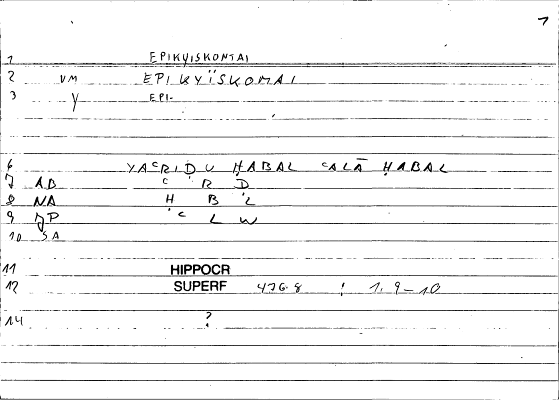 1
1 EPIKYISKONTAI
2 VM EPIKYÏSKOMAI
3 γ EPI-
6 YAʿRIḌU ḤABAL ʿALĀ ḤABAL
7 AB ʿ R Ḍ
8 NA Ḥ B L
9 JP ʿ L W
10 SA
11 HIPPOCR
12 SUPERF 476.8 : 1, 9-10
14 ?